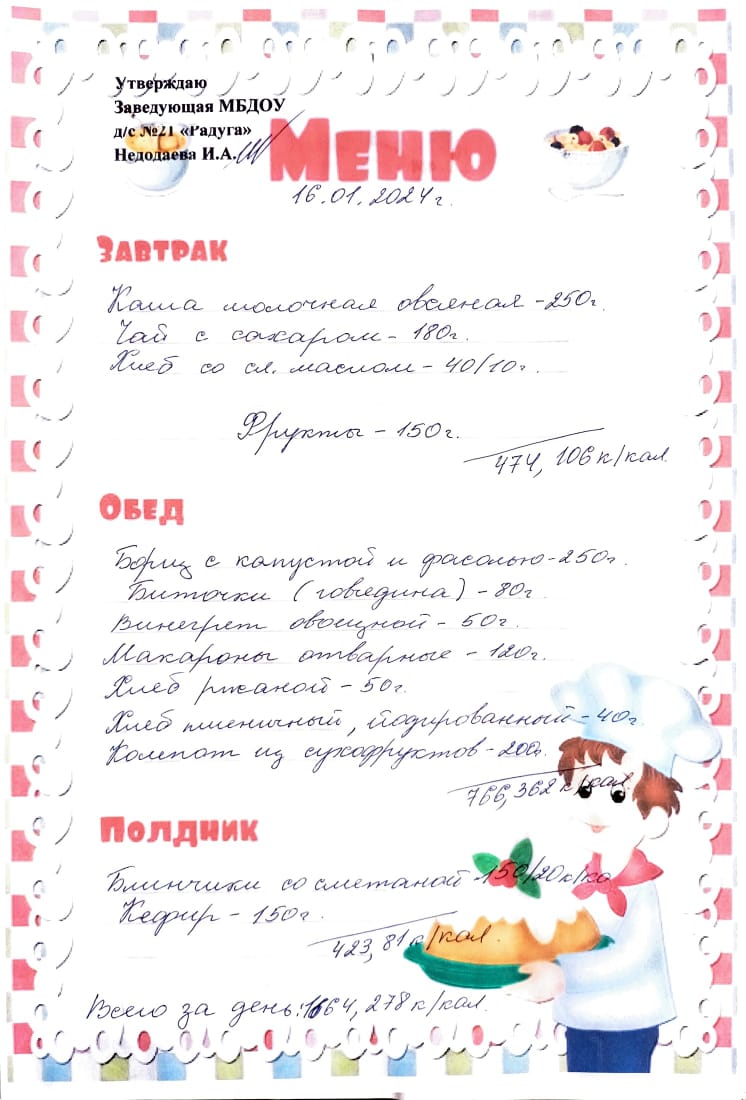 Утверждаю
Заведующая МБДОУ
д/с №21 «Радуга»
Недодаева И.А.
МЕНЮ
16.01.2024г.
ЗАВТРАК
Каша молочная овсяная - 250г.
Чай с сахаром - 180г.
Хлеб со сл. маслом - 40/10г.
Фрукты - 150г.
474,106 к/кал.
ОБЕД
Борщ с капустой и фасолью - 250г.
Биточки (говядина) - 80г.
Винегрет овощной - 50г.
Макароны отварные - 120г.
Хлеб ржаной - 50г.
Хлеб пшеничный, йодированный - 40г.
Компот из сухофруктов - 200г.
766,362 к/кал.
ПОЛДНИК
Блинчики со сметаной 150/20 к/ка
Кефир - 150г.
423,81 к/кал.
Всего за день: 1664,278 к/кал.